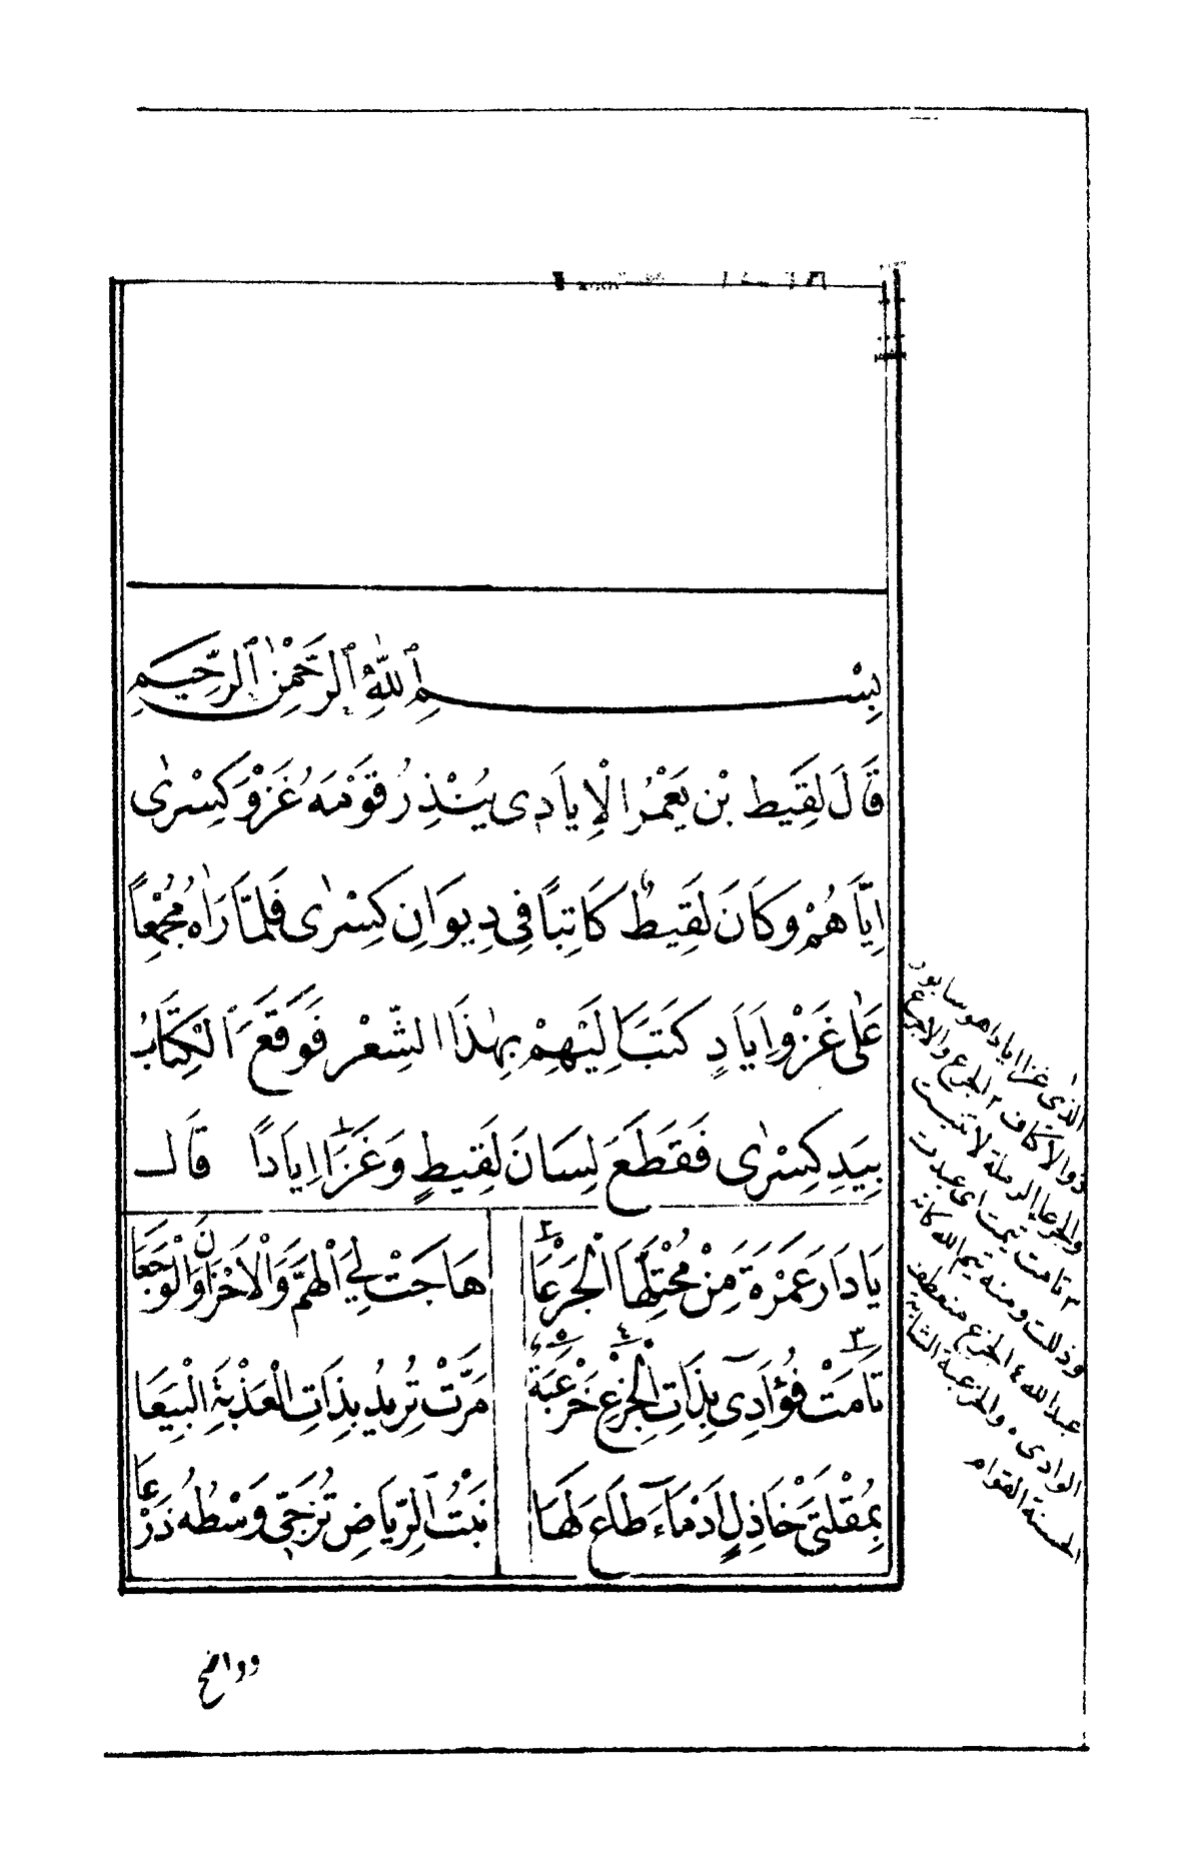 بِسْمِ اللّٰهِ الرَّحْمٰنِ الرَّحِيمِ
قَالَ لَقِيَط بْن يَعْمُر الْاِيَادِى يُنْذِرُ قَوْمَهُ غَزْوَ كِسْرٰى
اِيَّاهُمْ وَكَانَ لَقِيطٌ كَاتِبًا فِى دِيوَانِ كِسْرٰى فَلَمَّا رَاٰهُ مُجْمِعًا
عَلٰى غَزْوِ اِيَادٍ كَتَبَ اِلَيْهِمْ بِهٰذَا الشِّعْرِ فَوَقَعَ الْكِتَابُ
بِيَدِ كِسْرٰى فَقَطَعَ لِسَانَ لَقِيطٍ وَغَزَا ١ اِيَادًا قَالَ
يَا دَارَ عَمْرَةَ مِنْ مُحْتَلِّهَا الْجَرَعَا ٢ هَاجَتْ لِيَ الْهَمَّ وَالْاَحْزَانَ وَالْوَجَعَا
تَامَتْ ٣ فُؤَادِى بِذَاتِ الْجِزْعِ ٤ خَرْعَبَةٌ ٥ مَرَّتْ تُرِيدُ بِذَاتِ الْعَذْبَةِ الْبِيَعَا
بِمُقْلَتَىْ خَاذِلٍ اَدْمَاءَ طَاعَ لَهَا نَبْتُ الرِّيَاضِ تُزَجِّى وَسْطَهُ ذَرَعَا
١ الذى غزا ايادا هو سابور
ذو الاكاف ٢ الجرع والاجرع
والجرعا الرملة لا تنبت
٣ تامت تيمت اى عبدت
وذللت ومنه تيم الله كانه
عبد الله ٤ الجزع منعطف
الوادى ٥ والخرعبة الشابة
الحسنة القوام
وواضح